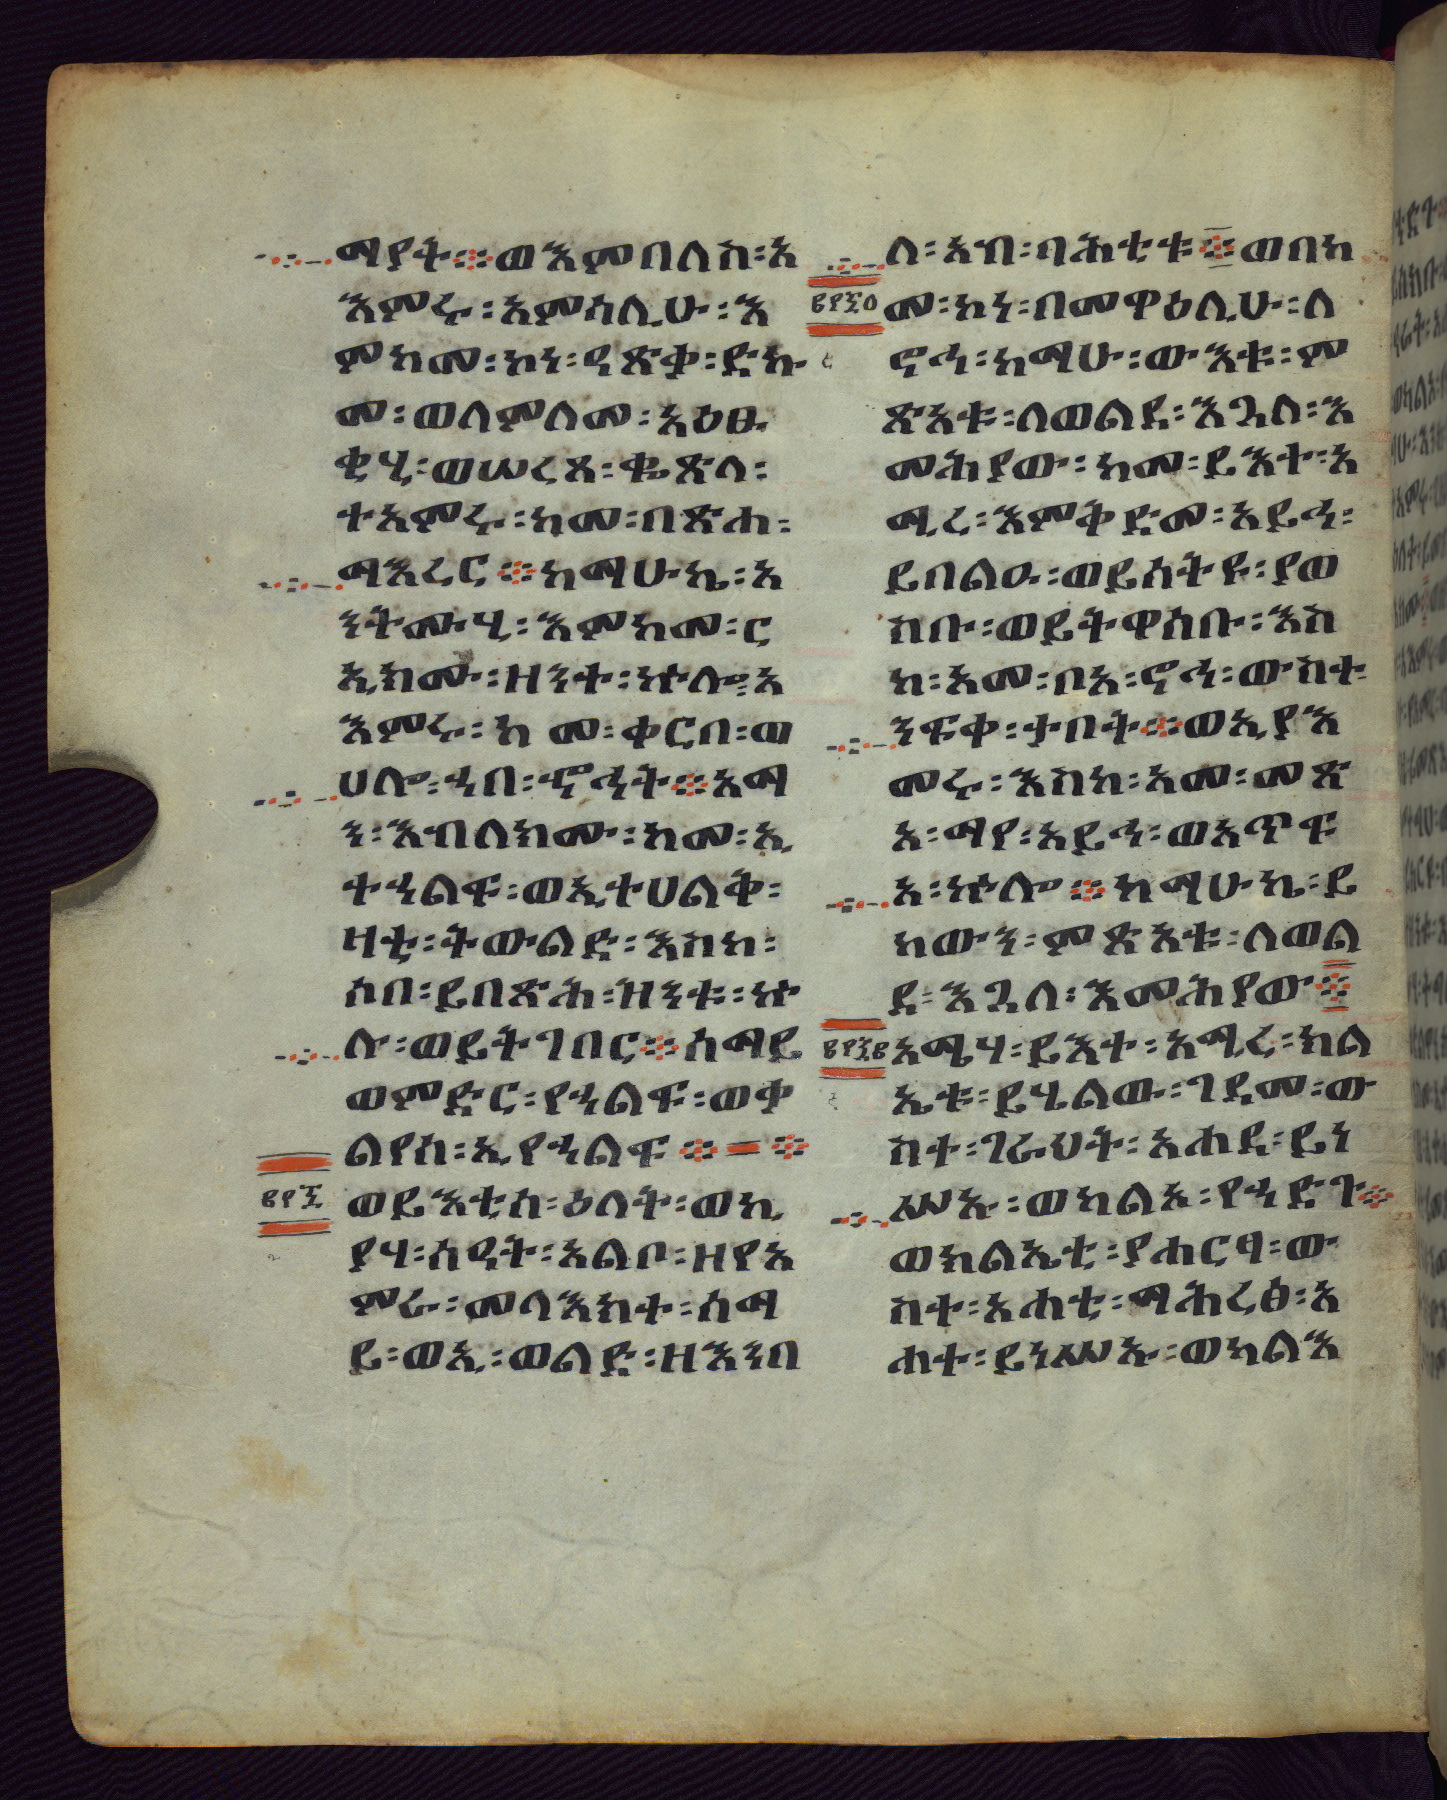 ማያት፨ወእምበለስ፡አ
እምሩ፡አምሳሊሁ፡እ
ምከመ፡ከነ፡ዲጽቃ፡ድኩ
መ፡ወለምለመ፡አዕፁ
ቂሃ፡ወሠረጸ፡ቈጽላ፡
ተአምሩ፡ከመ፡በጽሐ፡
ማእረር፨ከማሁኬ፡አ
ንትሙሂ፡እምከመ፡ር
ኢክሙ፡ዘንተ፡ኵሎ፡አ
እምሩ፡ከመ፡ቀርበ፡ወ
ሀሎ፡ኀበ፡ኆኅት፨አማ
ን፡እብለክሙ፡ከመ፡ኢ
ተኀልፍ፡ወኢተሀልቅ፡
ዛቲ፡ትውልድ፡እስከ፡
ሶበ፡ይበጽሕ፡ዝንቱ፡ኵ
ሉ፡ወይትገበር፨ሰማይ
ወምድር፡የኀልፍ፡ወቃ
ልየሰ፡ኢየኀልፍ፨=፨
፪፻፷
ወይእቲሰ፡ዕለት፡ወኪ
ያሃ፡ሰዓት፡አልቦ፡ዘየአ
ምራ፡መላእክተ፡ሰማ
ይ፡ወኢ፡ወልድ፡ዘእንበ
ለ፡አብ፡ባሕቲቱ፨ወበከ
፪፻፷፩
መ፡ከነ፡በመዋዕሊሁ፡ለ
ኖኅ፡ከማሁ፡ውእቱ፡ም
ጽአቱ፡ለወልደ፡እጓለ፡እ
መሕያው፡ከመ፡ይእተ፡አ
ሚረ፡እምቅድመ፡አይኅ፡
ይበልዑ፡ወይሰትዩ፡ያወ
ስቡ፡ወይትዋሰቡ፡እስ
ከ፡አመ፡ቦአ፡ኖኅ፡ውስተ
ንፍቀ፡ታቦት፨ወኢያእ
መሩ፡እስከ፡አመ፡መጽ
አ፡ማየ፡አይኅ፡ወአጥፍ
አ፡ኵሎ፨ከማሁኬ፡ይ
ከውን፡ምጽአቱ፡ለወል
ደ፡እጓለ፡እመሕያው፨
፪፻፷፪
አሜሃ፡ይእተ፡አሚረ፡ክል
ኤቱ፡ይሄልው፡ገዳመ፡ው
ስተ፡ገራህት፡አሐደ፡ይነ
ሥኡ፡ወካልአ፡የኀድጉ፨
ወክልኤቲ፡ያሐርፃ፡ው
ስተ፡አሐቲ፡ማሕረፅ፡አ
ሐተ፡ይነሥኡ፡ወካልእ